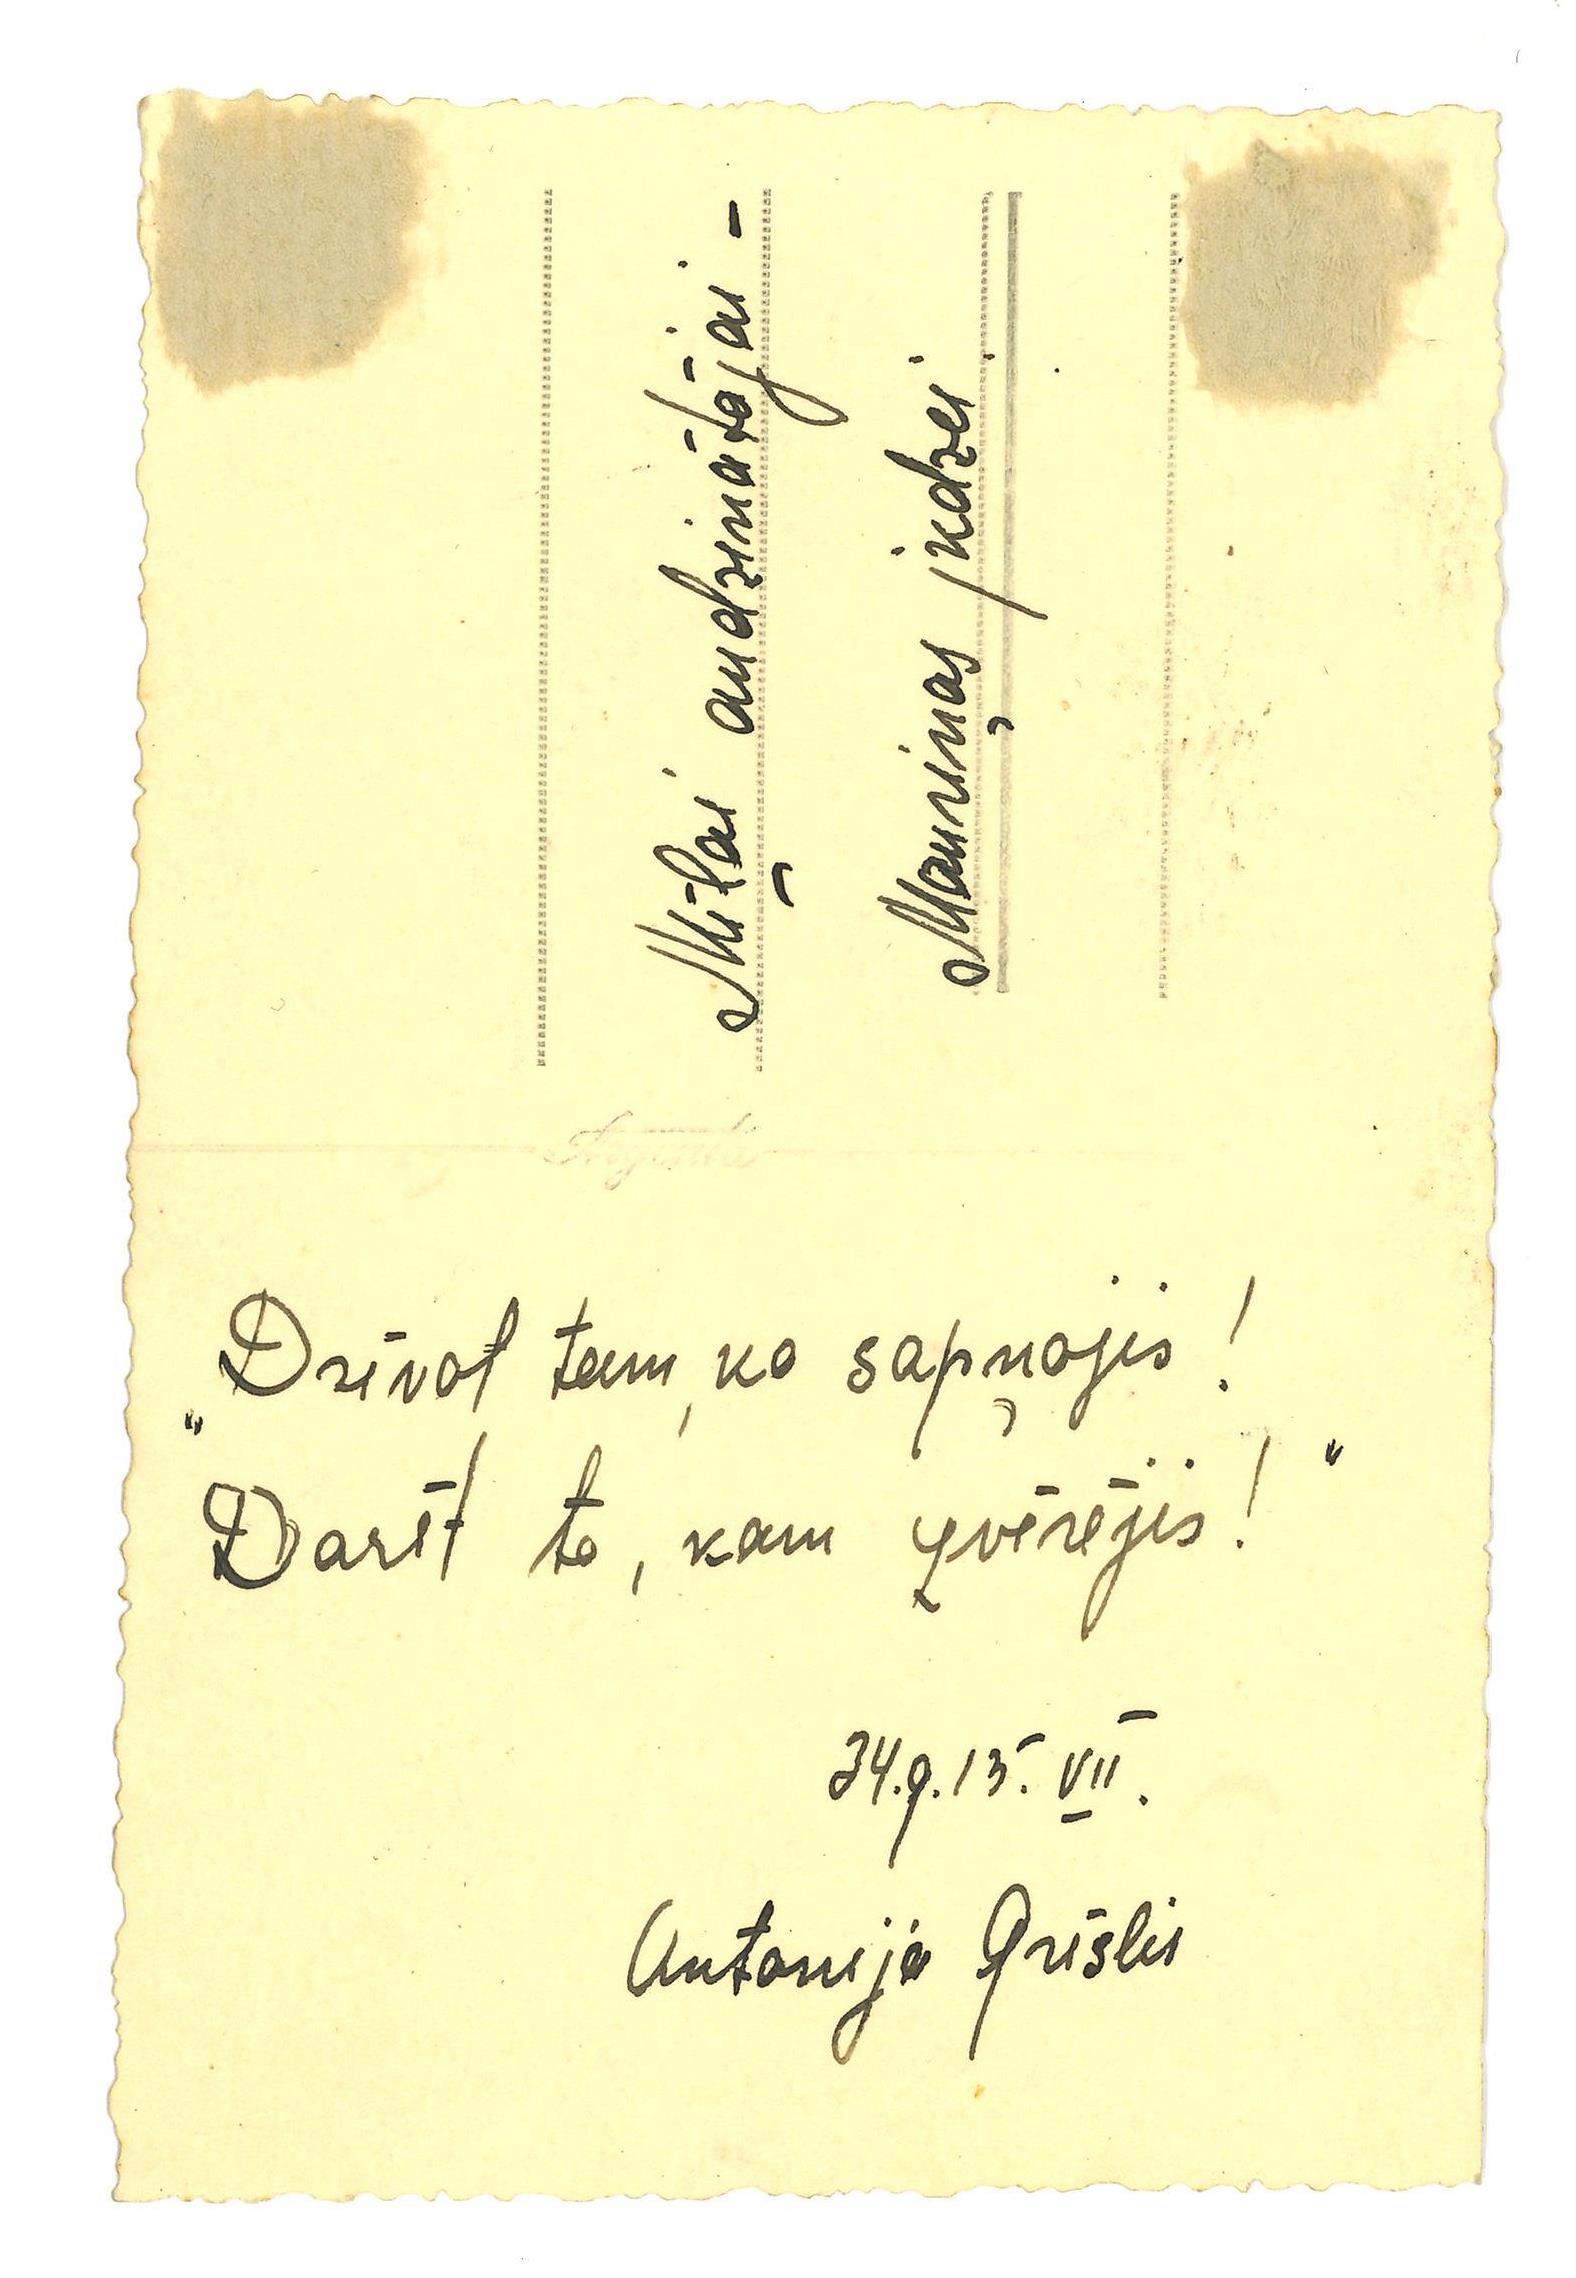 Mīļai audzinātājai -
Mauriņas jkdzei
„Dzīvot tam, ko sapņojis!
Darīt to, kam zvērējis!"
34.g. 15. VII.
Antonija Grīslis